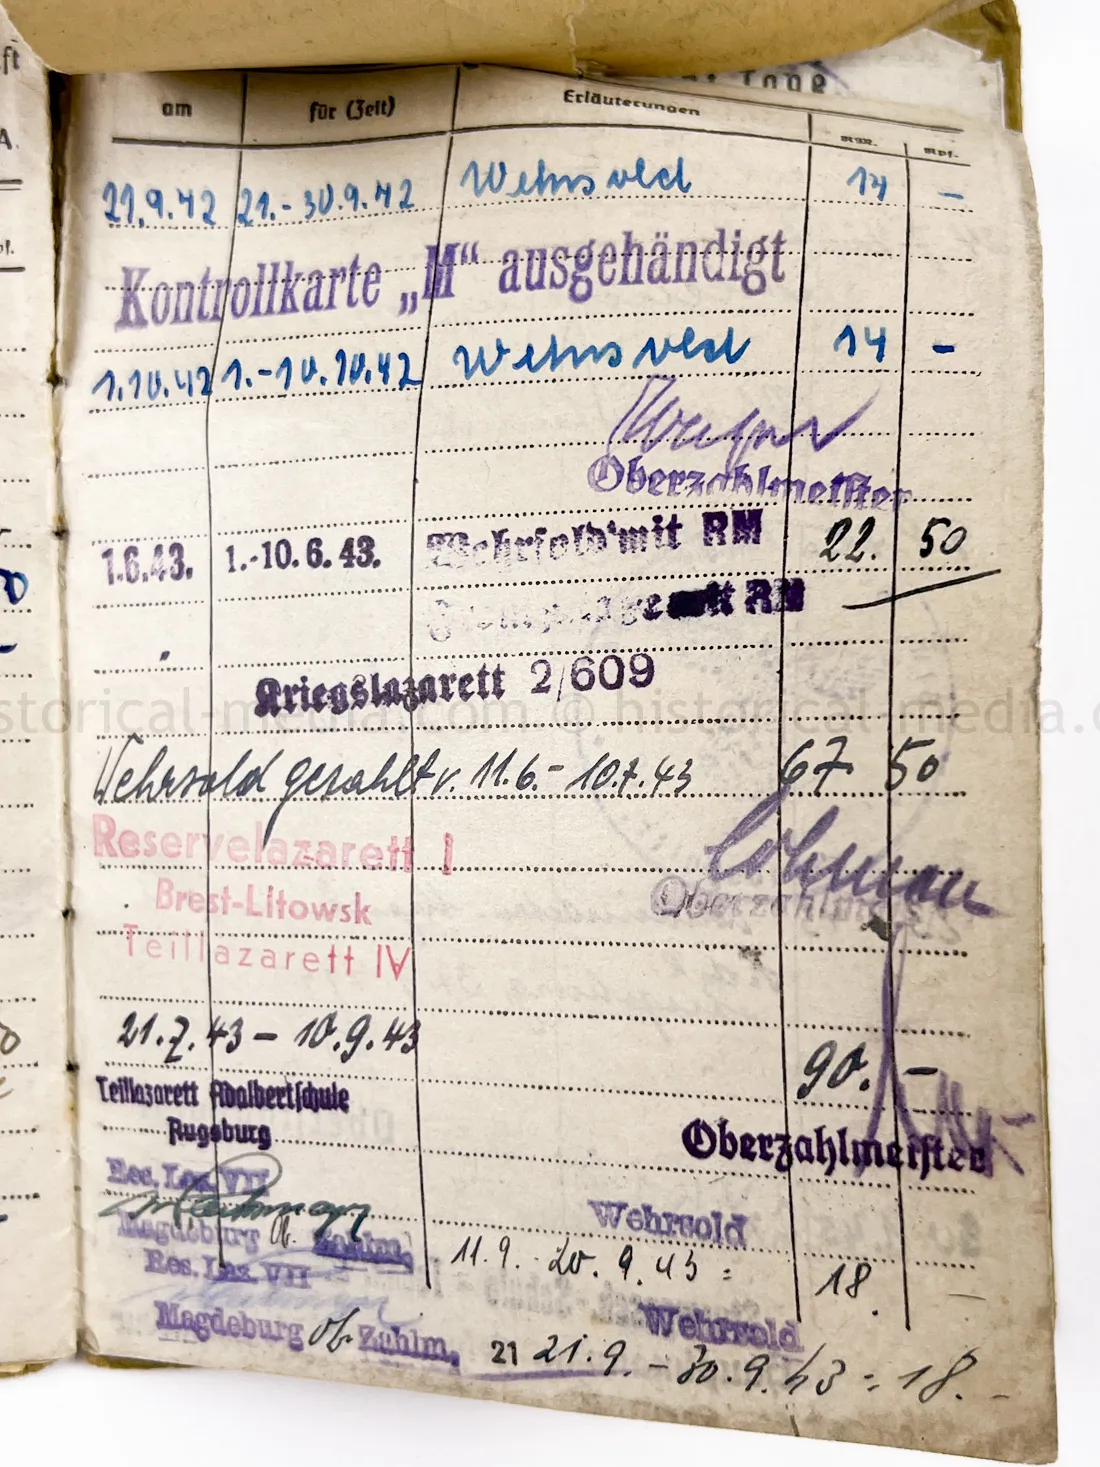 am für (Zeit) Erläuterungen RM. Rpf.
21.9.42 21.-30.9.42 Wehrsold 14 –
Kontrollkarte „M“ ausgehändigt
1.10.42 1.-10.10.42 Wehrsold 14 –
Oberzahlmeister
1.6.43. 1.-10.6.43. Wehrsold mit RM 22. 50
mit RM
Kriegslazarett 2/609
historical-media.com © historical-media.c
Wehrsold gezahlt v. 11.6.- 10.7.43 67 50
Reservelazarett I
Brest-Litowsk
Oberzahlmeister
Teillazarett IV
21.7.43 – 10.9.43 90. –
Teillazarett Adalbertschule
Augsburg
Oberzahlmeister
Res. Laz. VII
Wehrsold
Magdeburg Ob. Zahlm.
11.9. - 20.9.43 = 18. –
Res. Laz. VII
Wehrsold
Magdeburg Ob. Zahlm.
21 21.9. – 30.9.43 = 18. -